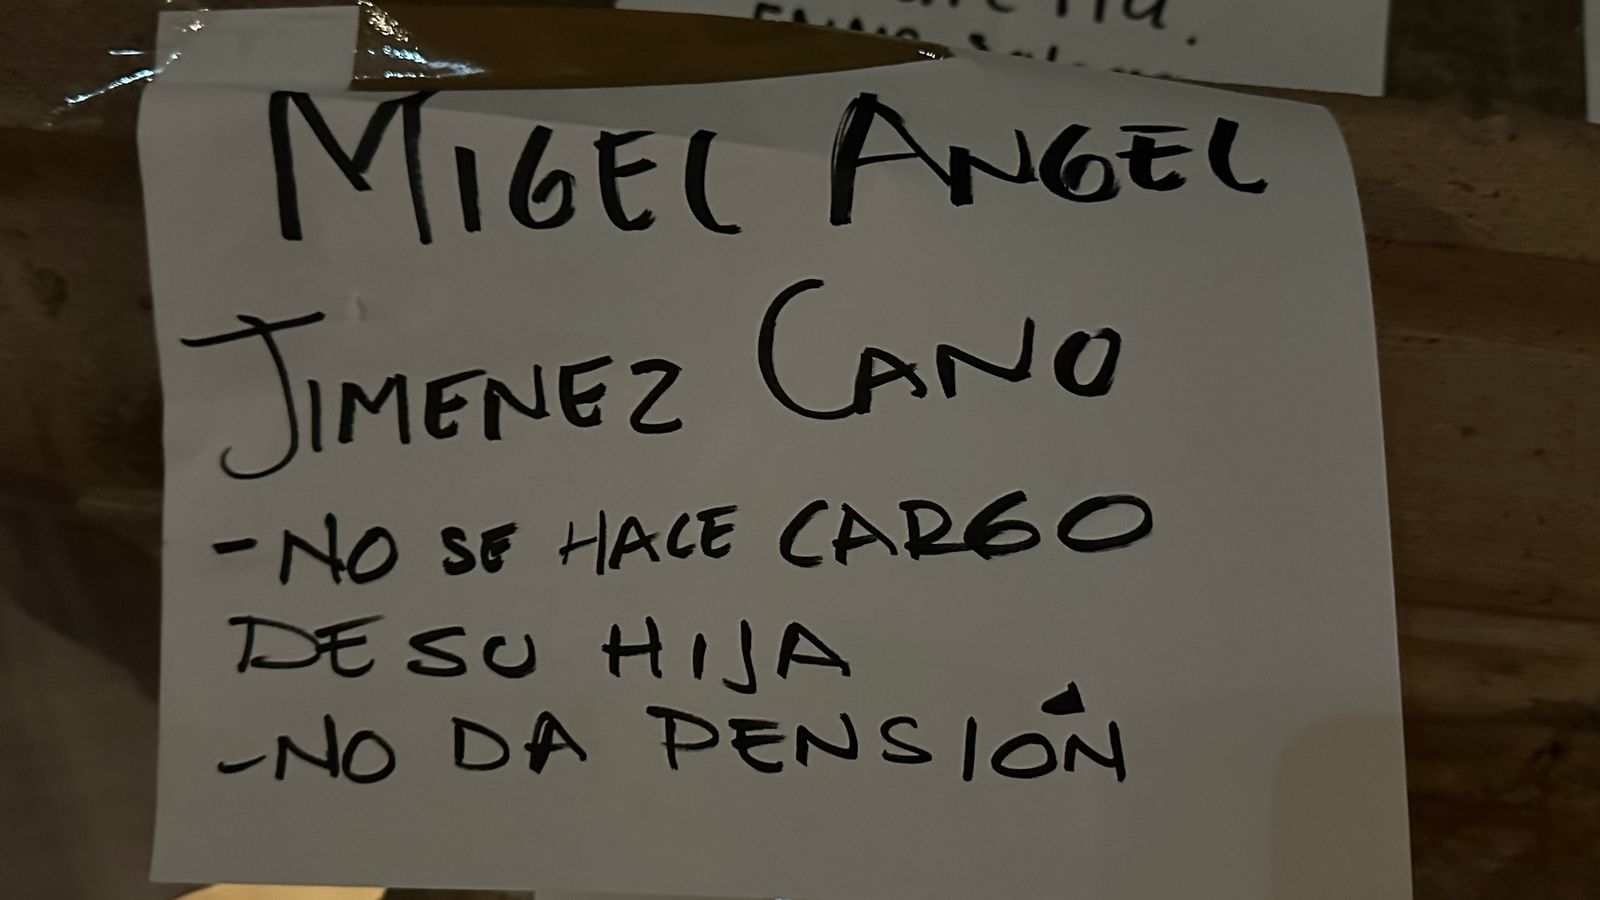 MIGEL ANGEL
JIMENEZ CANO
-NO SE HACE CARGO
DE SU HIJA
-NO DA PENSIÓN